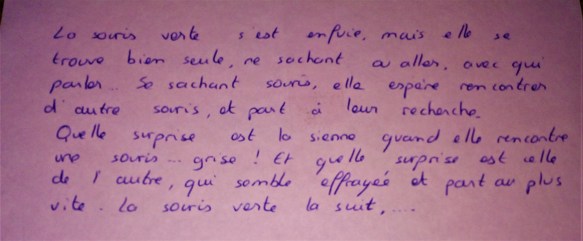 La souris verte s'est enfuie, mais elle se
trouve bien seule, ne sachant ou aller, avec qui
parler... Se sachant souris, elle espère rencontrer
d'autre souris, et part à leur recherche.
Quelle surprise est la sienne quand elle rencontre
une souris... grise ! Et quelle surprise est celle
de l'autre, qui semble effrayée et part au plus
vite. La souris verte la suit,....